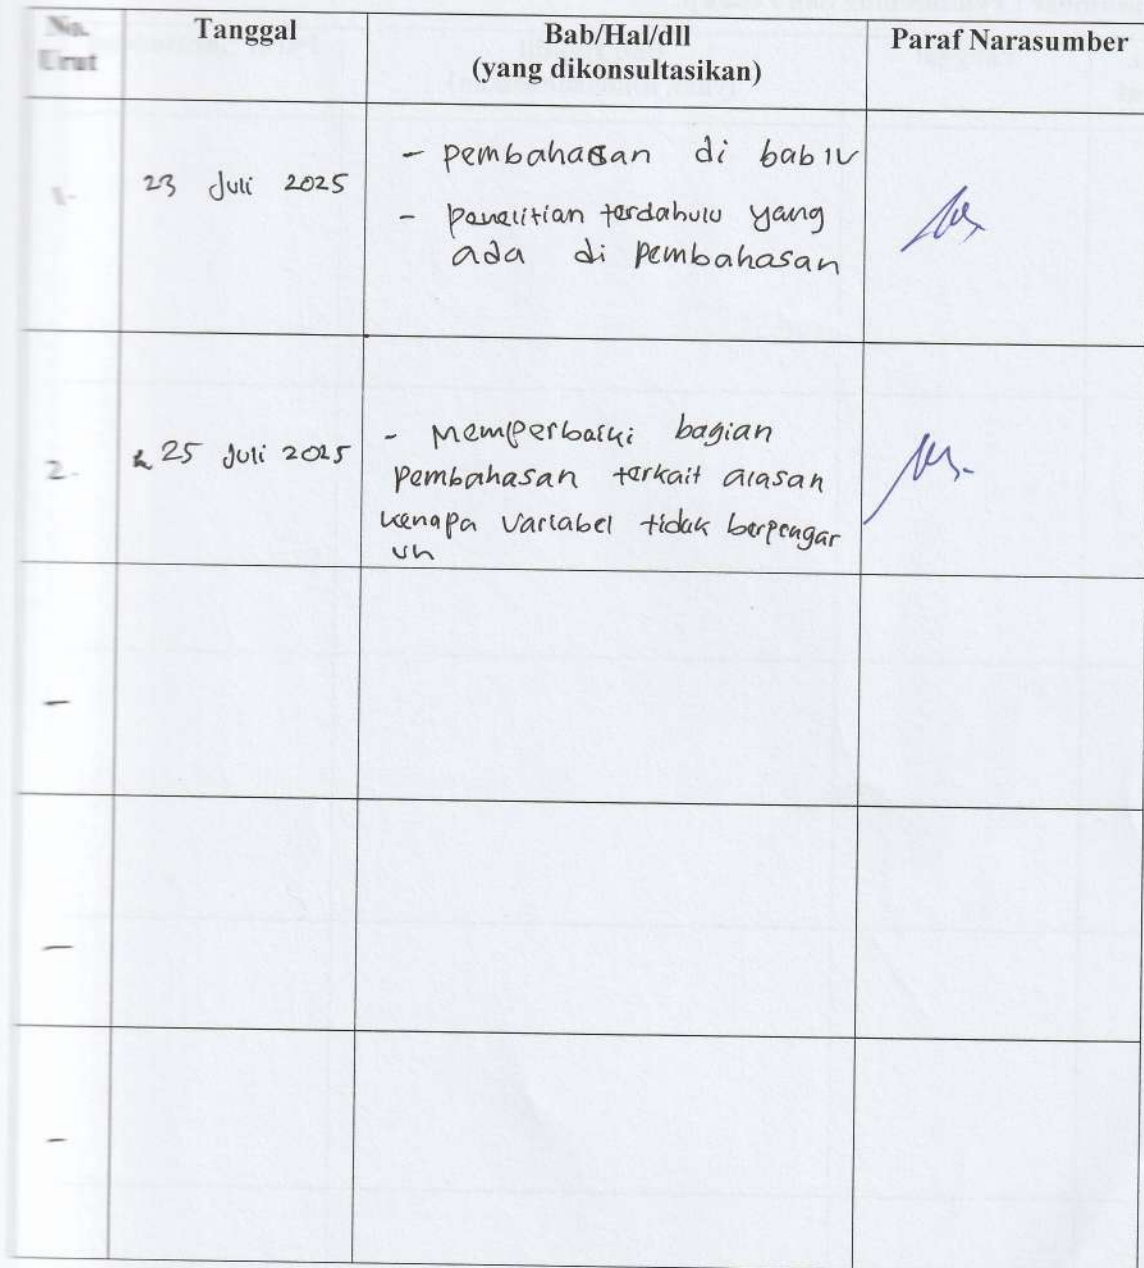 No. Urut
Tanggal
Bab/Hal/dll
(yang dikonsultasikan)
Paraf Narasumber
1-
23 Juli 2025
- pembahasan di bab IV
- penelitian terdahulu yang
ada di pembahasan
2-
25 Juli 2025
- Memperbaiki bagian
pembahasan terkait alasan
kenapa variabel tidak berpengar
uh
-
-
-